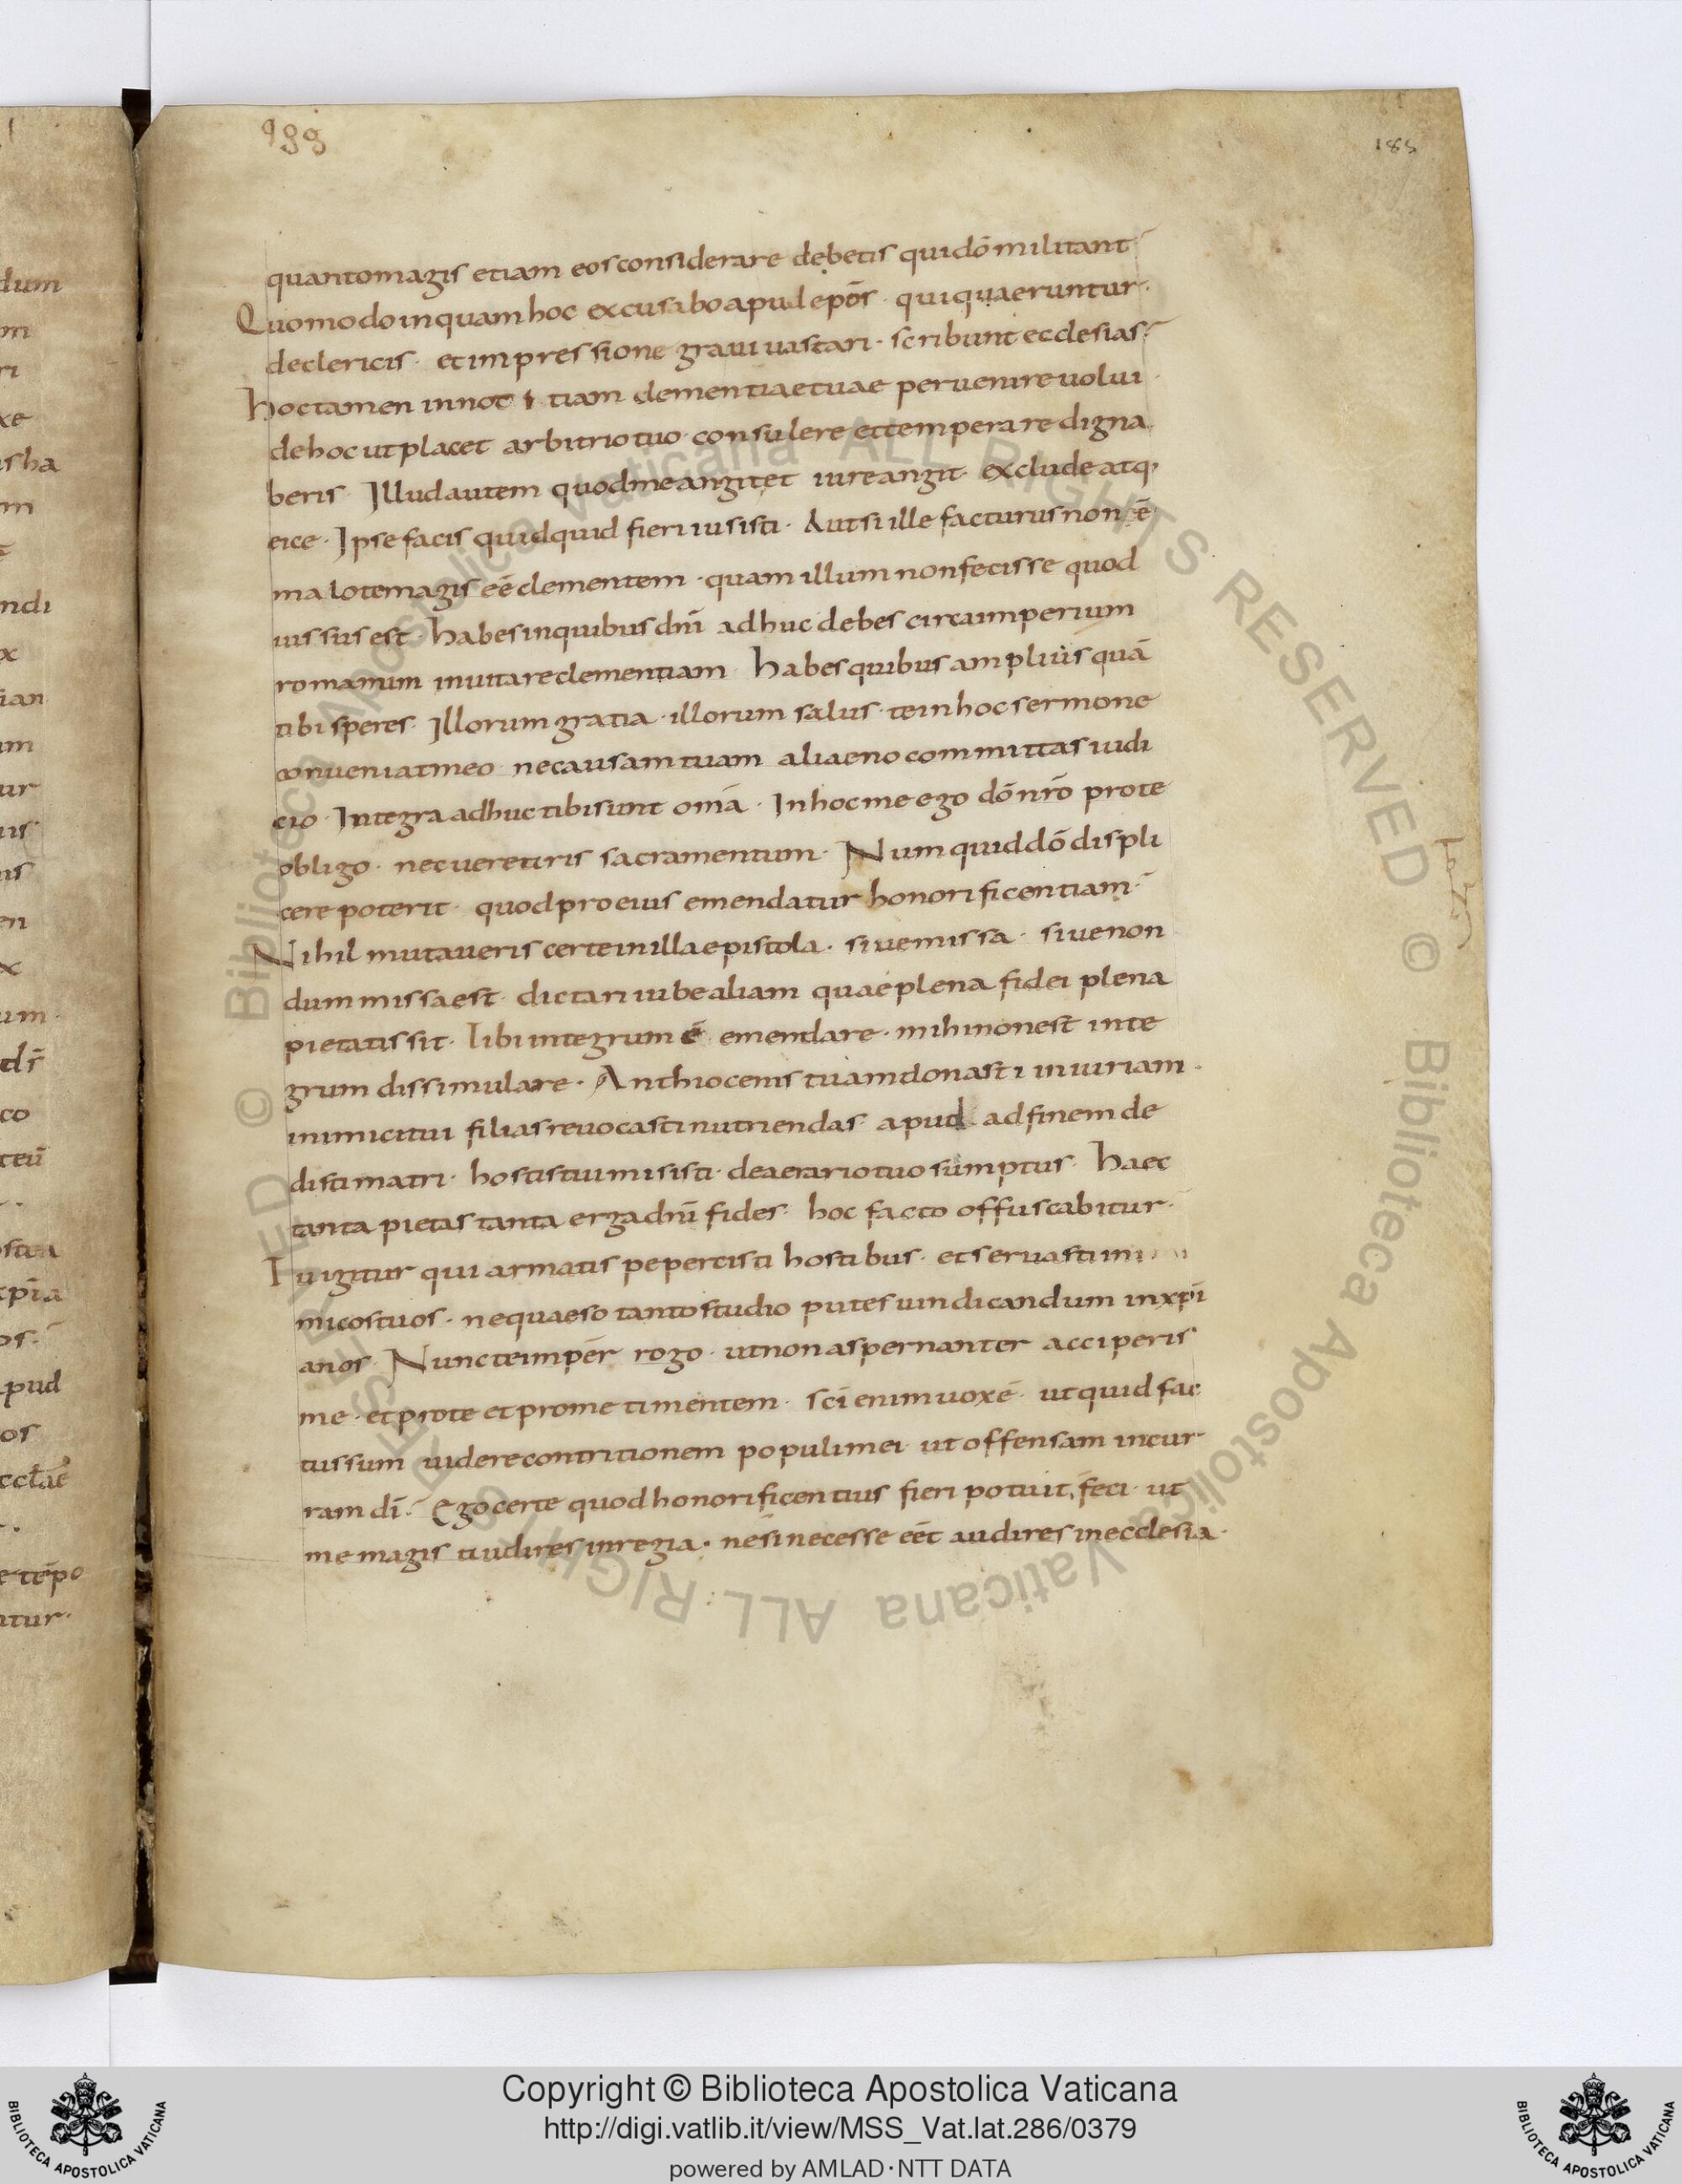 188
quantomagis etiam eos considerare debetis qui dō militant
Quomodo inquam hoc excusabo apud epōs · qui quaeruntur ·
declericis · et impressione graui uastari · scribunt ecclesias ·
hoc tamen in notitiam clementiae tuae peruenire uolui ·
dehoc ut placet arbitrio tuo consulere et temperare digna
beris · Illud autem quod me angit et iure angit · exclude atq;
eice · Ipse facis quidquid fieri iusisti · Aut si ille facturus non ē
malo te magis eē clementem · quam illum non fecisse quod
iussus est · habes in quibus dn̄i adhuc debes circa imperium
romanum inuitare clementiam · habes quibus amplius quā
tibi speres · Illorum gratia · illorum salus · te in hoc sermone
conueniat meo · ne causam tuam aliaeno committas iudi
cio · Integra adhuc tibi sunt omā · In hoc me ego dō nr̄o pro te
obligo · nec uereturis sacramentum · Numquid dō displi
cere poterit · quod pro eius emendatur honorificentiam ·
Nihil mutaueris certe in illa epistola · siue missa · siue non
dum missa est · dictari iube aliam quae plena fidei plena
pietatis sit · Tibi integrum ē emendare · mihi non est inte
grum dissimulare · Anthiocenis tuam donasti iniuriam ·
inimici tui filias reuocasti nutriendas apud adfinem de
disti matri · hostis tui misisti · de aerario tuo sumptus · haec
tanta pietas tanta erga dn̄i fides · hoc facto offuscabitur ·
Tu igitur qui armatis pepercisti hostibus · et seruasti
micos tuos · ne quaeso tanto studio putes uindicandum in xp̄i
anos · Nunc te impēr rogo · ut non aspernanter acciperis
me · et pro te et pro me timentem · sc̄i enim uox ē · ut quid fac
tus sum uidere contritionem populi mei · ut offensam incur
ram dī · Ego certe quod honorificentius fieri potuit · feci · ut
me magis audires in regia · ne si necesse eēt audires in ecclesia ·
dum
m
ri
xe
m
ndi
x
um
ur
en
x
um ·
co
apud
os
tēpo
atur ·
© Biblioteca Apostolica Vaticana ALL RIGHTS RESERVED © Biblioteca Apostolica Vaticana ALL RIGHTS RESERVED
Copyright © Biblioteca Apostolica Vaticana
http://digi.vatlib.it/view/MSS_Vat.lat.286/0379
powered by AMLAD·NTT DATA
BIBLIOTECA APOSTOLICA VATICANA
BIBLIOTECA APOSTOLICA VATICANA